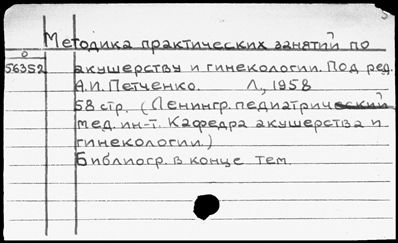 Методика практических занятий по
О
56352
акушерству и гинекологии. Под ред.
А.И. Петченко. Л, 1958
58 стр. (Ленингр. педиатрический
мед. ин-т. Кафедра акушерства и
гинекологии.)
Библиогр. в конце тем.